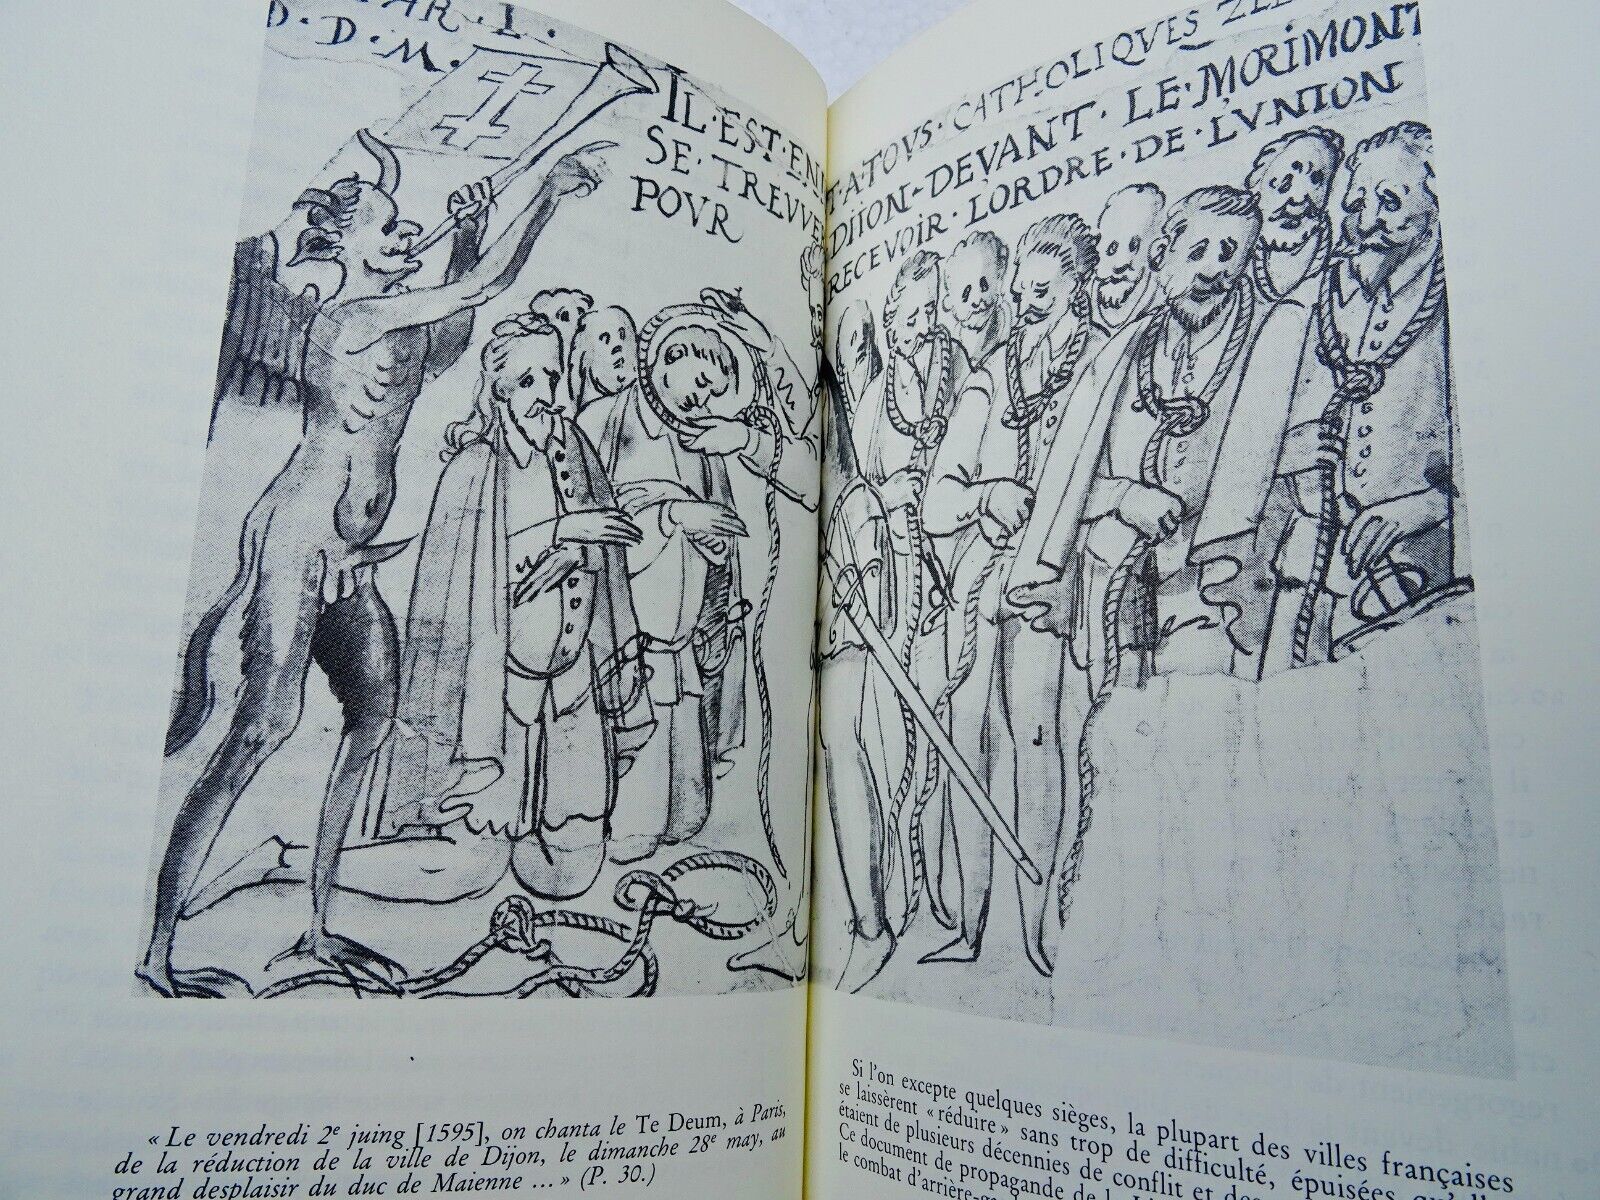 PAR · I.
D · D · M.
IL · EST · EN
SE · TREUVE
POVR
T · A · TOVS · CATHOLIQVES
DIION - DEVANT · LE · MORIMONT
RECEVOIR · LORDRE · DE · LVNION
« Le vendredi 2e juing [1595], on chanta le Te Deum, à Paris,
de la réduction de la ville de Dijon, le dimanche 28e may, au
grand desplaisir du duc de Maienne ... » (P. 30.)
Si l'on excepte quelques sièges, la plupart des villes françaises
se laissèrent « réduire » sans trop de difficulté, épuisées
étaient de plusieurs décennies de conflit et
Ce document de propagande de la
le combat